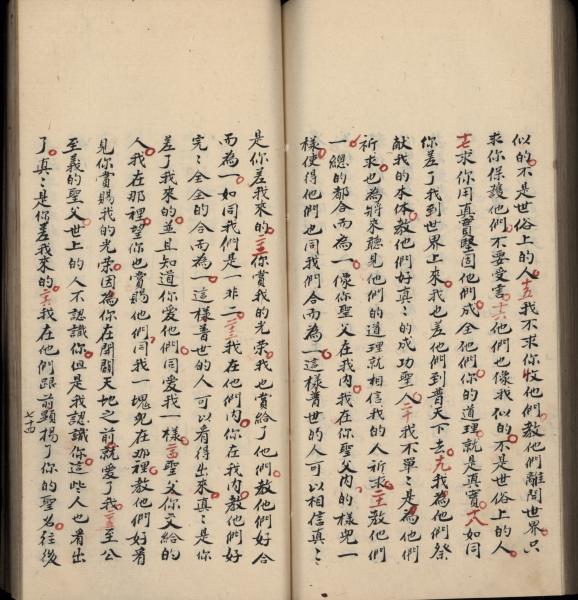 似的不是世俗上的人十五我不求你收他們教他們離開世界只
求你保護他們不要受害十六他們也像我似的不是世俗上的人
十七求你用真實堅固他們成全他們你的道理就是真實十八如同
你差了我到世界上來我也差他們到普天下去十九我為他們祭
獻我的本体教他們好真〻的成功聖人二十我不單〻是為他們
祈求也為將來聽見他們的道理就相信我的人祈求二一教他們
一總的都合而為一像你聖父在我內我在你聖父內的樣兒一
樣使得他們也同我們合而為一這樣普世的人可以相信真〻
是你差我來的二二你賞我的光榮我也賞給了他們教他們好合
而為一如同我們是一非二二三我在他們內你在我內教他們好
完〻全全的合而為一這樣普世的人可以看得出來真〻是你
差了我來的並且知道你愛他們同愛我一樣二四聖父你交給的
人我在那裡望你也賞賜他們同我一塊兒在那裡教他們好看
見你賞賜我的光榮因為你在開闢天地之前就愛了我二五至公
至義的聖父世上的人不認識你但是我認識你這些人也看出
了真〻是你差我來的二六我在他們跟前顯揚了你的聖名往後
七十四